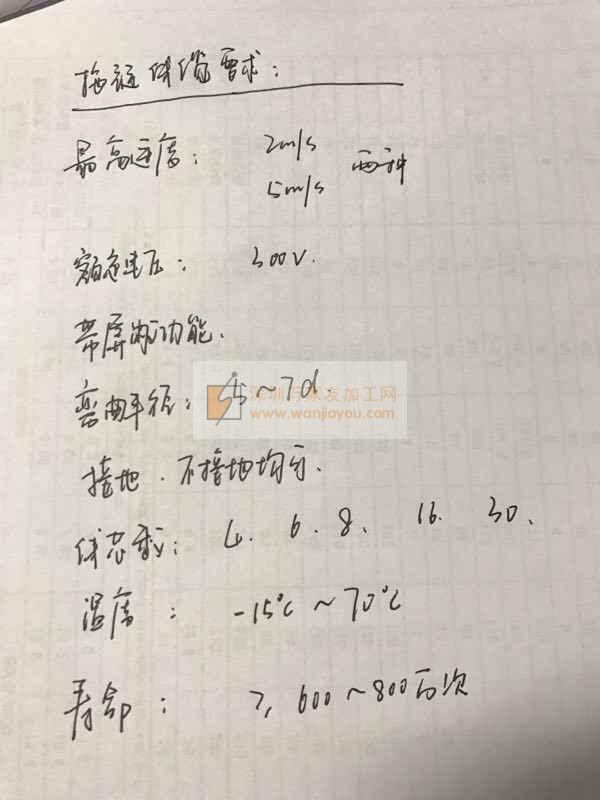 拖链线缆要求:
最高速度: 2m/s
5m/s 两种
额定电压: 300V.
带屏蔽功能.
弯曲半径: 5~7d.
深圳万家友加工网
www.wanjiayou.com
接地.不接地均可.
线芯数: 4. 6. 8. 16. 30.
温度: -15℃~70℃
寿命: ≥600~800万次